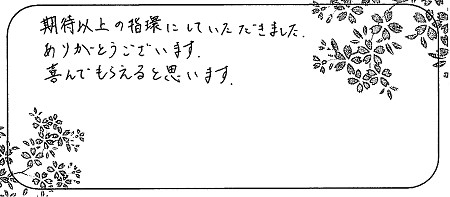 期待以上の指環にしていただきました.
ありがとうございます.
喜んでもらえると思います.